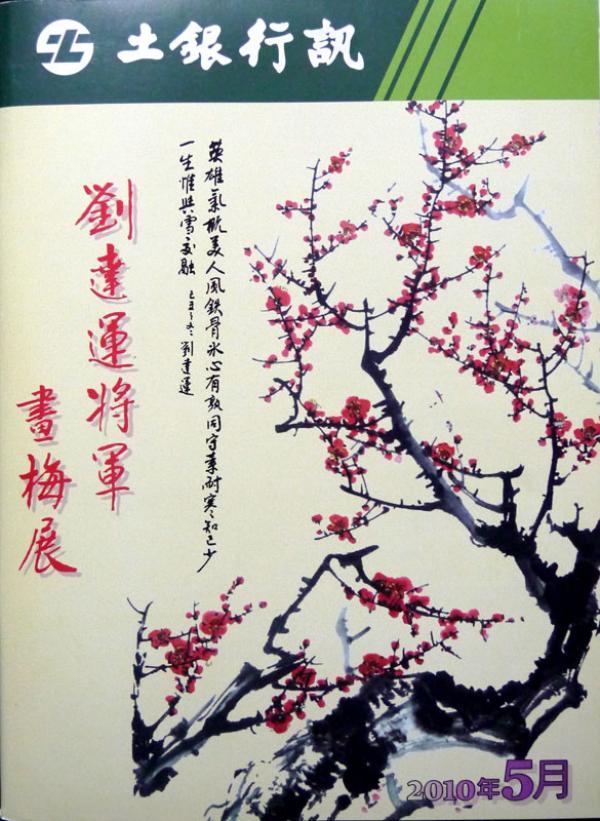 土銀行訊
劉達運將軍
畫梅展
英雄氣概美人風鐵骨冰心有孰同守素耐寒知己少
一生惟與雪交融 己丑冬 劉達運
2010年5月